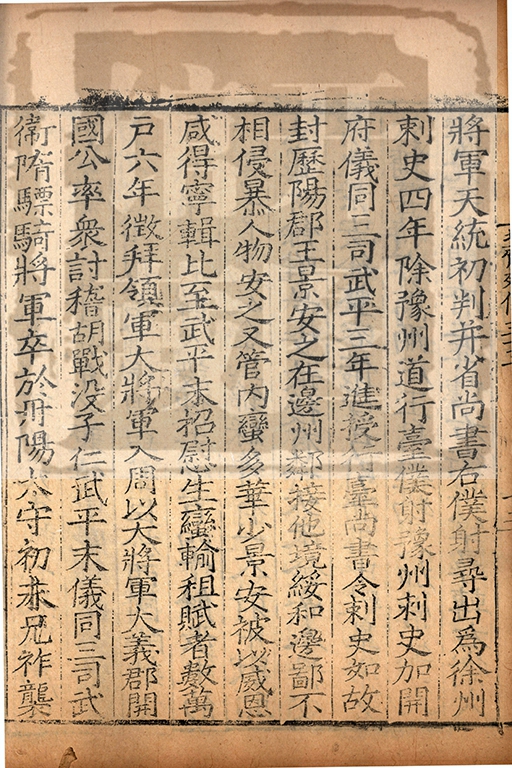 將軍天統初判并省尚書右僕射尋出爲徐州
刺史四年除豫州道行臺僕射豫州刺史加開
府儀同三司武平三年進授行臺尚書令刺史如故
封歷陽郡王景安之在邊州鄰接他境綏和邊鄙不
相侵暴人物安之又管內蠻多華少景安被以威恩
咸得寧輯比至武平末招慰生蠻輸租賦者數萬
戶六年徵拜領軍大將軍入周以大將軍大義郡開
國公率衆討稽胡戰没子仁武平末儀同三司武
衞隋驃騎將軍卒於丹陽太守初永兄祚襲